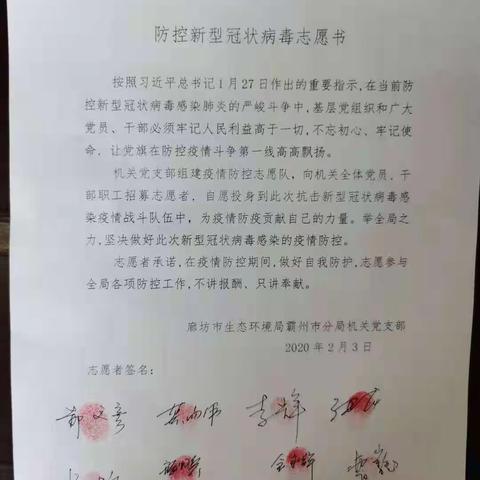 防控新型冠状病毒志愿书
按照习近平总书记1月27日作出的重要指示,在当前防
控新型冠状病毒感染肺炎的严峻斗争中,基层党组织和广大
党员、干部必须牢记人民利益高于一切,不忘初心、牢记使
命,让党旗在防控疫情斗争第一线高高飘扬。
机关党支部组建疫情防控志愿队,向机关全体党员、干
部职工招募志愿者,自愿投身到此次抗击新型冠状病毒感
染疫情战斗队伍中,为疫情防疫贡献自己的力量。举全局之
力,坚决做好此次新型冠状病毒感染的疫情防控。
志愿者承诺,在疫情防控期间,做好自我防护,志愿参与
全局各项防控工作,不讲报酬、只讲奉献。
廊坊市生态环境局霸州市分局机关党支部
2020年2月3日
志愿者签名: